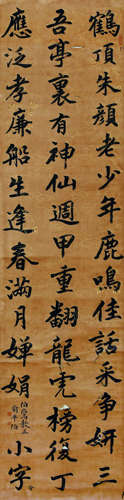 鶴頂朱顏老少年鹿鳴佳話采爭妍三
吾亭裏有神仙週甲重翻龍虎榜復丁
應泛孝廉船生逢春滿月嬋娟小字